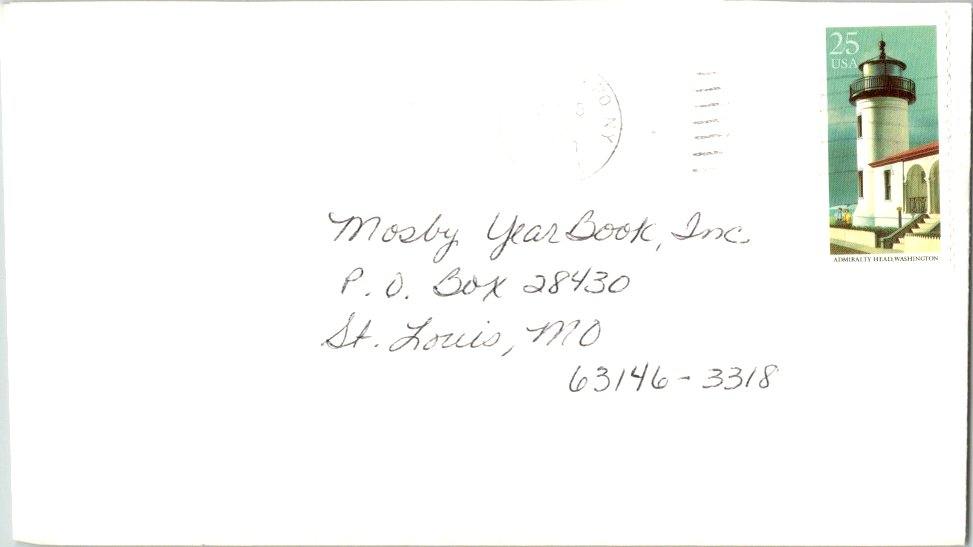 25
USA
ADMIRALTY HEAD, WASHINGTON
NY
Mosby YearBook, Inc.
P.O. Box 28430
St. Louis, MO
63146-3318